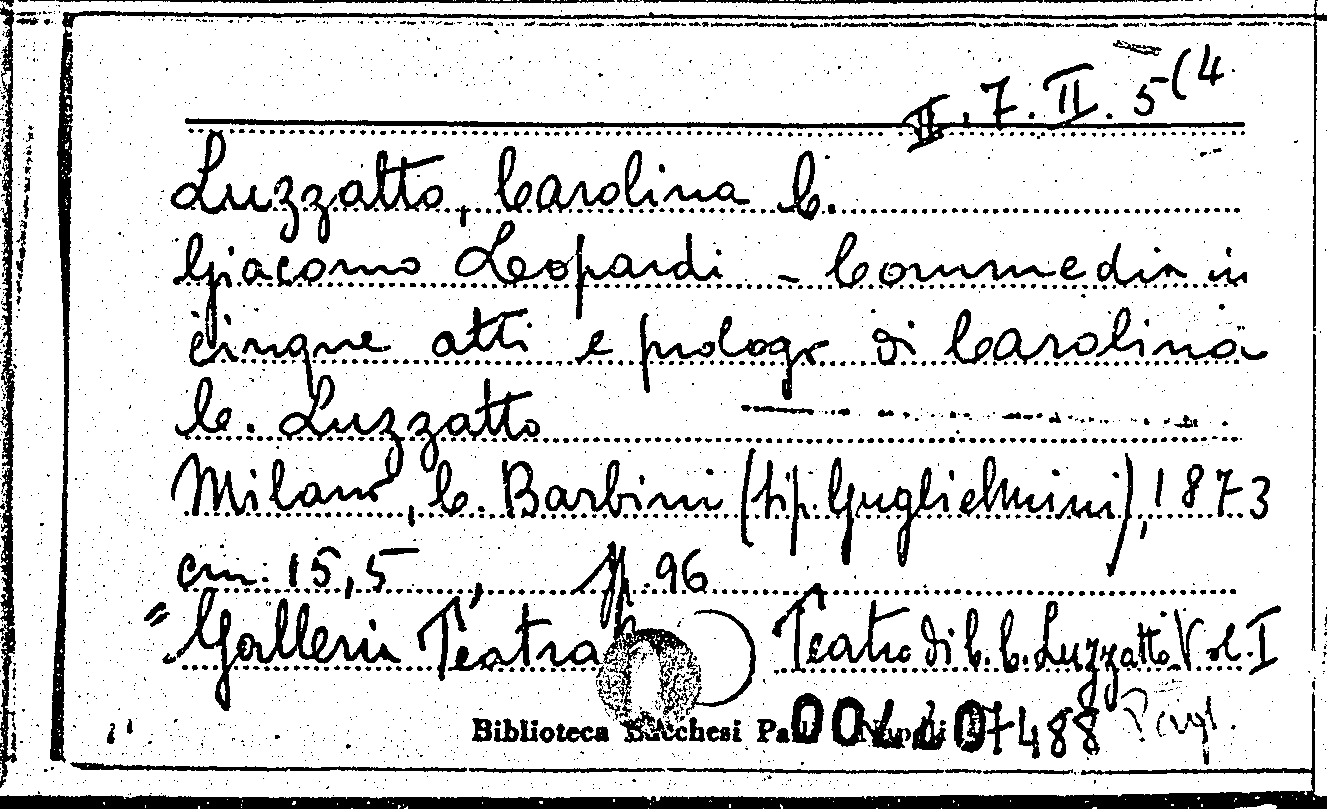 II.7.II.5(4
Luzzatto, Carolina C.
Giacomo Leopardi - Commedia in
cinque atti e prologo di Carolina
C. Luzzatto
Milano, C. Barbini (tip. Guglielmini), 1873
cm. 15,5, pp. 96
"Galleria Teatra Teatro di C. C. Luzzatto Vol. I
Biblioteca Lucchesi Palli Napoli
07488